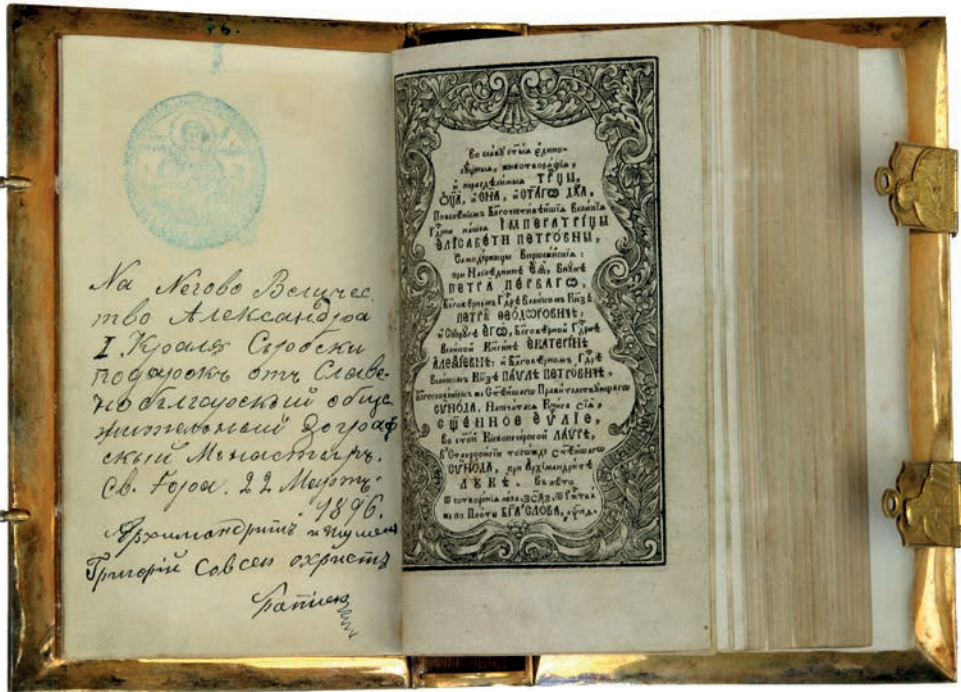 На Негово Величес.
тво Александра
I. Краля Сърбски
подарокъ отъ Славе-
ноблгарский обще
жителный Зограф
ский Монастиръ.
Св. Гора. 22 Мартъ.
1896.
Архимандритъ и Игумен
Григорий со всеи
Во славу ст҃ыѧ є҆дино-
сꙋ́щныѧ, животворѧ́щїѧ,
и нераздѣ́лимыѧ ТРЦ҃Ы,
Ѻ҆Ц҃А̀, и҆ СН҃А, и҆ СТ҃А́ГѠ ДХ҃А,
Повелѣ́нїемъ Бл҃гочести́вѣйшїѧ Вели́кїѧ
Гдр҃ни нашеѧ ИМПЕРАТРІ́ЦЫ
Є҆ЛІСАВЕ́ТИ ПЕТРО́ВНЫ,
Самоде́ржицы Всерѡссі́йскїѧ:
при Наслѣ́дникѣ Є҆Ѧ̀, Внꙋ́кѣ
ПЕТРА̀ ПЕ́РВАГѠ,
Бл҃говѣ́рномъ Гдр҃ѣ Вели́комъ Кн҃зѣ
ПЕТРѢ̀ ѲЕѺ́ДѠРОВИЧѢ:
и Сꙋпрꙋ́гѣ Є҆ГѠ̀, Бл҃говѣ́рной Гдр҃нѣ
Вели́кой Кнг҃и́нѣ Є҆КАТЕРІ́НѢ
А҆ЛЕѮІ́ЕВНѢ: и Бл҃говѣ́рномъ Гдр҃ѣ
Вели́комъ Кн҃зѣ ПА́ѴЛѢ ПЕТРО́ВИЧѢ.
Бл҃гослове́нїемъ же Ст҃ѣ́йшагѡ Прави́телствꙋющагѡ
СѴНО́ДА, Напеча́тасѧ Кни́га СІѦ̀,
СЩ҃Е́ННОЕ Є҆Ѵ҃ЛІЕ,
Во ст҃о́й Кїевопече́рской ЛА́ѴРѢ,
Ста́ѵропигїи тогѡ́жде ст҃ѣ́йшагѡ
СѴНО́ДА, при А҆рхїмандрі́тѣ
ЛꙊКѢ̀. Въ лѣ́то
ѿ сотворе́нїѧ мі́ра
же по Пло́ти БГ҃А СЛО́ВА,